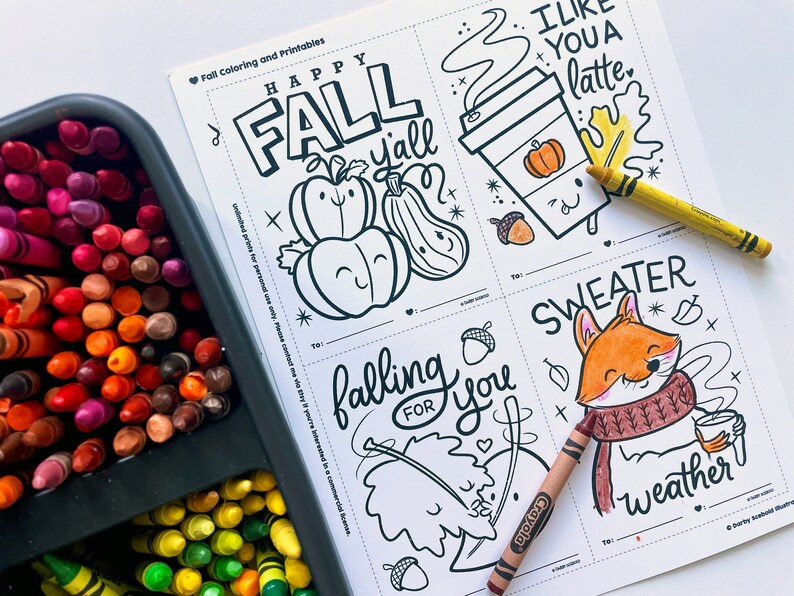 Fall Coloring and Printables
HAPPY
FALL
y'all
To:
© DARBY SCEBOLD
I LIKE
YOU A
latte.
To:
© DARBY SCEBOLD
Unlimited prints for personal use only. Please contact me via Etsy if you're interested in a commercial license.
falling
FOR you
SWEATER
weather
To:
© DARBY SCEBOLD
Crayola
© Darby Scebold Illustra